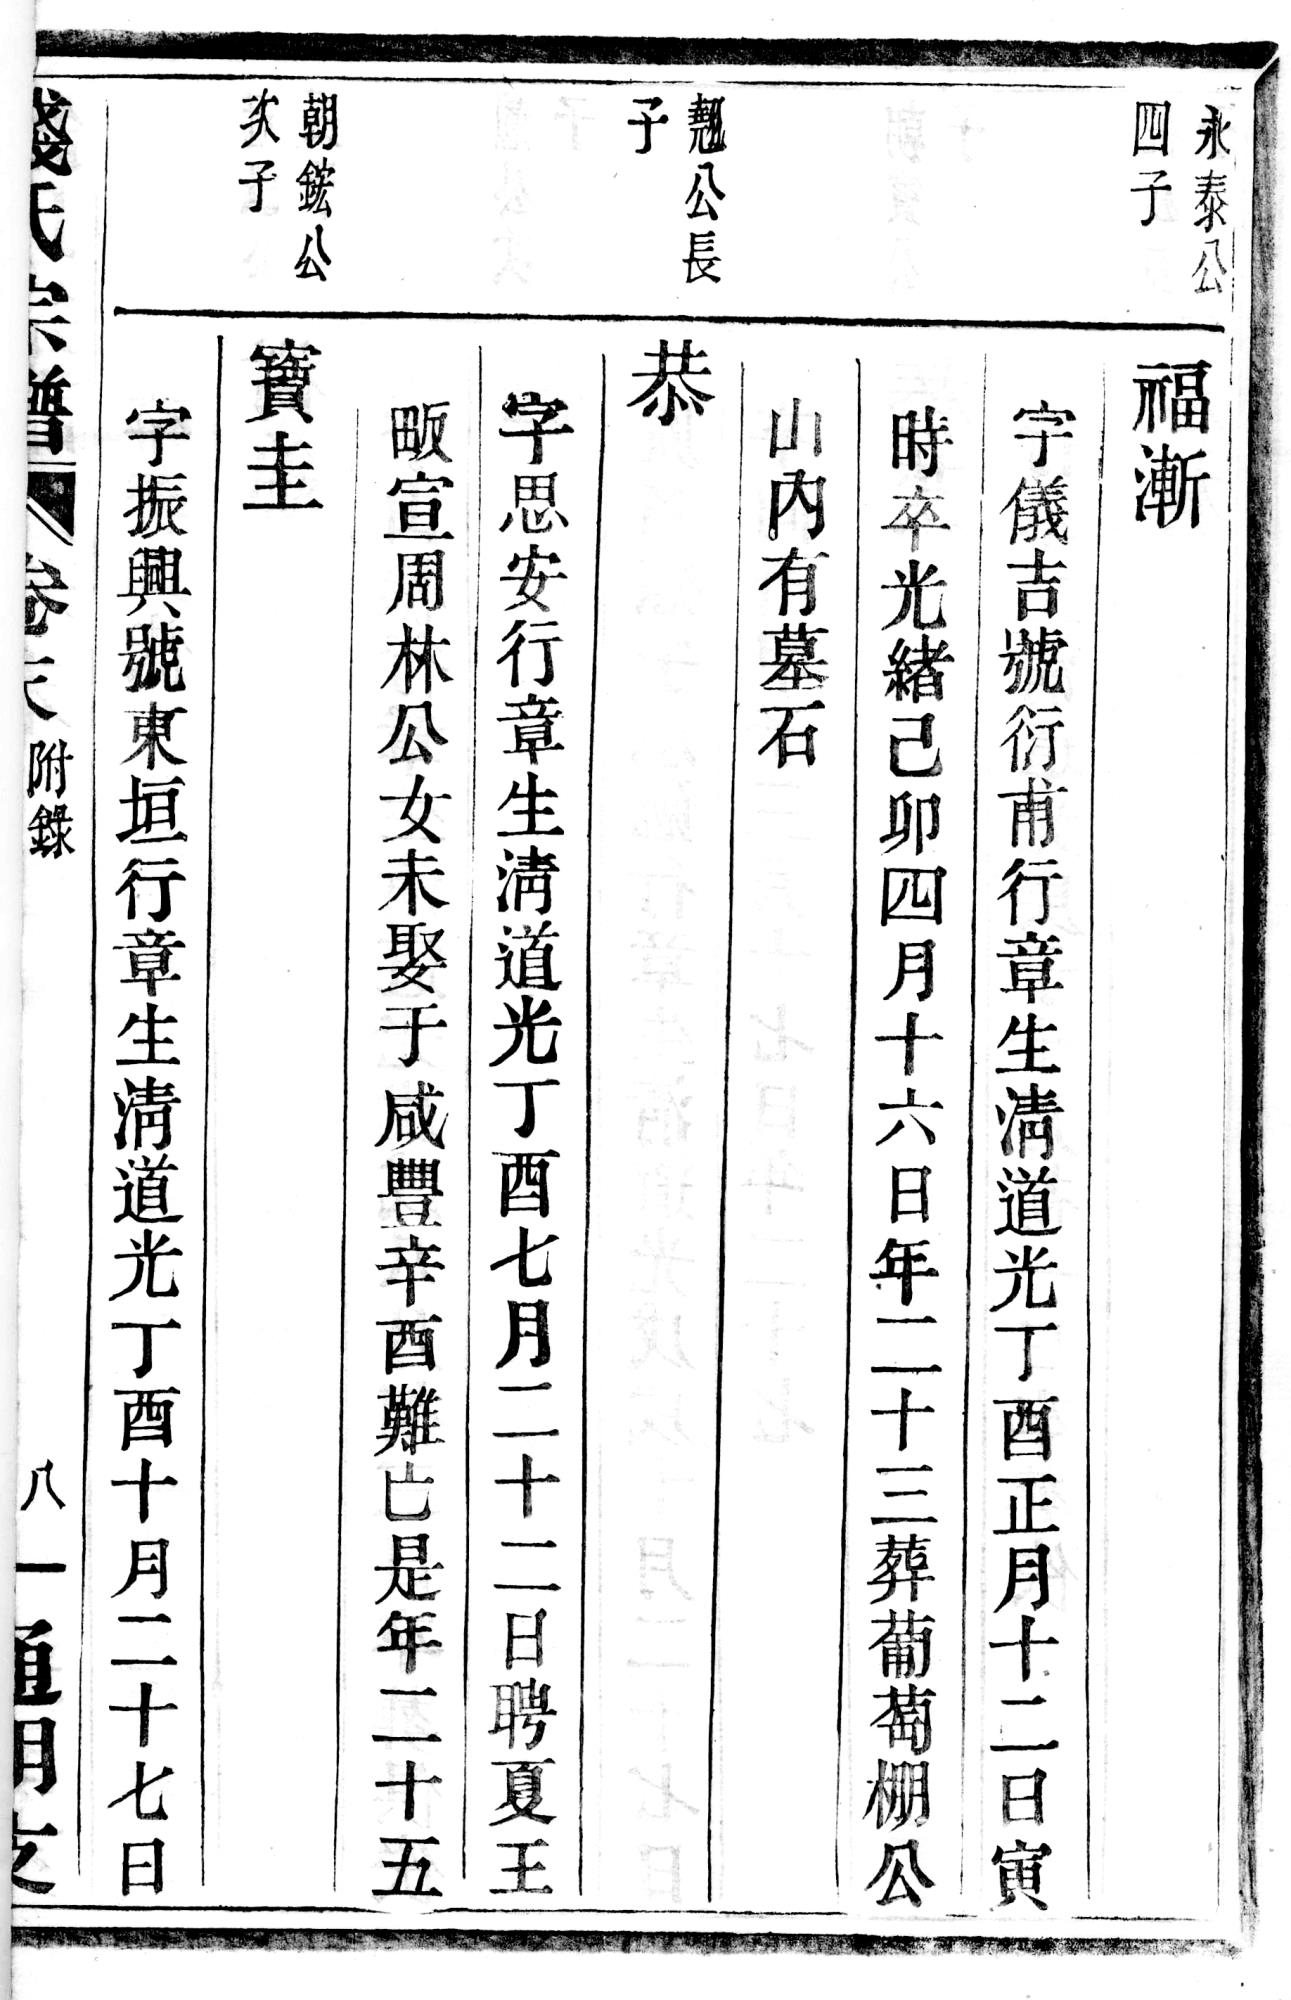 永泰公
四子
福漸
字儀吉號衍甫行章生淸道光丁酉正月十二日寅
時卒光緖己卯四月十六日年二十三葬葡萄棚公
山內有墓石
翹公長
子
恭
字思安行章生淸道光丁酉七月二十二日聘夏王
畈宣周林公女未娶于咸豐辛酉難亡是年二十五
朝鋐公
次子
寶圭
字振興號東垣行章生淸道光丁酉十月二十七日
錢氏宗譜 卷末 附錄 八 通明支